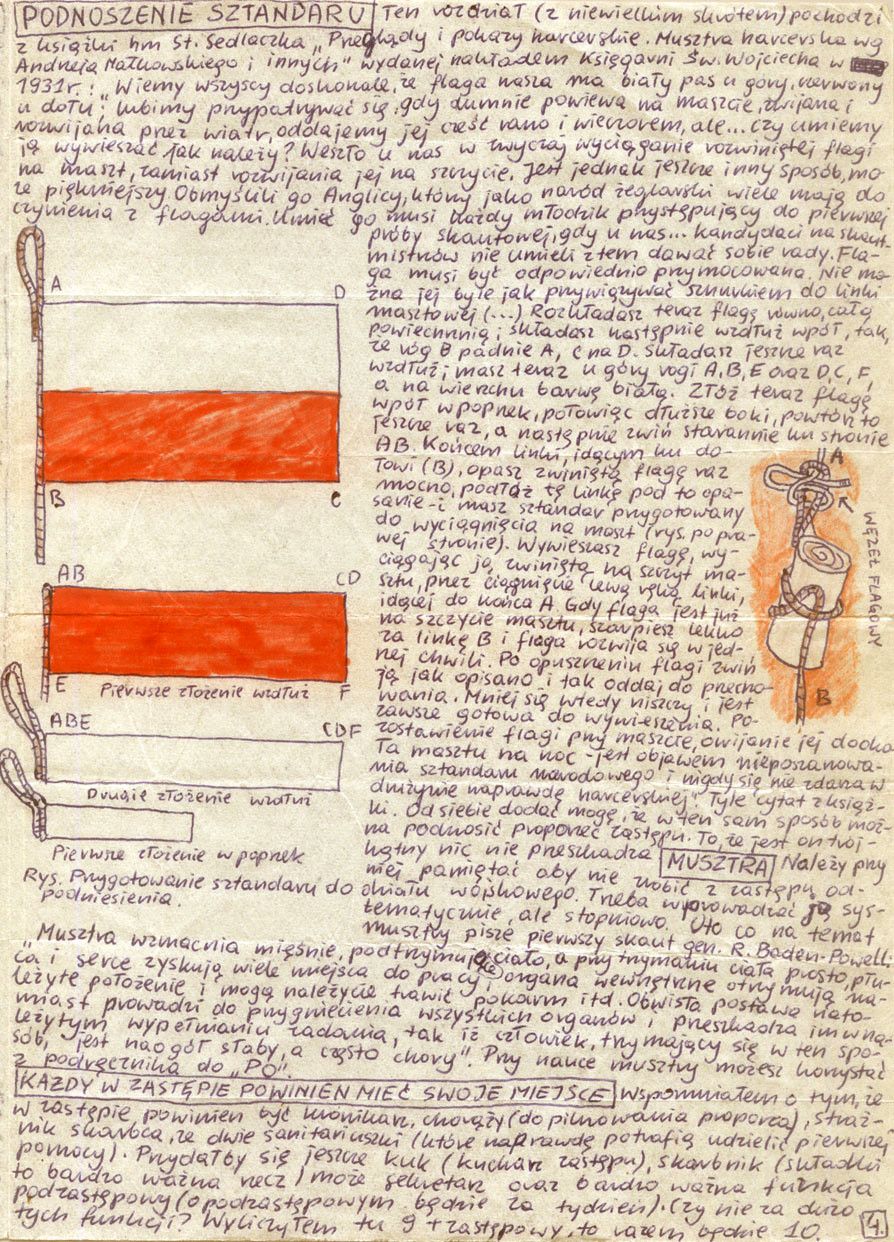 PODNOSZENIE SZTANDARU Ten rozdział (z niewielkim skrótem) pochodzi
z książki hm St. Sedlaczka „Przeglądy i pokazy harcerskie. Musztra harcerska wg
Andrzeja Małkowskiego i innych" wydanej nakładem Księgarni Św. Wojciecha w
1931r.: „Wiemy wszyscy doskonale, że flaga nasza ma biały pas u góry, czerwony
u dołu", lubimy przypatrywać się, gdy dumnie powiewa na maszcie, zwijana i
rozwijana przez wiatr, oddajemy jej cześć rano i wieczorem, ale... czy umiemy
ją wywieszać jak należy? Weszło u nas w zwyczaj wyciąganie rozwiniętej flagi
na maszt, zamiast rozwijania jej na szczycie. Jest jednak jeszcze inny sposób, mo-
że piękniejszy. Obmyślili go Anglicy, którzy jako naród żeglarski wiele mają do
czynienia z flagami. Umieć go musi każdy młodzik przystępujący do pierwszej
próby skautowej, gdy u nas... kandydaci na skaut-
mistrzów nie umieli z tem dawać sobie rady. Fla-
ga musi być odpowiednio przymocowana. Nie mo-
żna jej byle jak przywiązywać sznurkiem do linki
masztowej (...) Rozkładasz teraz flagę równo, całą
powierzchnią; składasz następnie wzdłuż wpół, tak,
że róg B padnie A, C na D. Składasz jeszcze raz
wzdłuż; masz teraz u góry rogi A, B, E oraz D, C, F,
a na wierzchu barwę białą. Złóż teraz flagę
wpół w poprzek, połowiąc dłuższe boki, powtórz to
jeszcze raz, a następnie zwiń starannie ku stronie
AB. Końcem linki, idącym ku do-
łowi (B), opasz zwiniętą flagę raz
mocno, podłóż tę linkę pod to opa-
sanie - i masz sztandar przygotowany
do wyciągnięcia na maszt (rys. po pra-
wej stronie). Wywieszasz flagę, wy-
ciągając ją zwiniętą na szczyt ma-
sztu, przez ciągnięcie lewą ręką linki,
idącej do końca A. Gdy flaga jest już
na szczycie masztu, szarpiesz lekko
za linkę B i flaga rozwija się w jed-
nej chwili. Po opuszczeniu flagi zwiń
ją jak opisano i tak oddaj do przecho-
wania. Mniej się wtedy niszczy i jest
zawsze gotowa do wywieszenia. Po-
zostawienie flagi przy maszcie, owijanie jej dooko-
ła masztu na noc - jest objawem nieposzanowa-
nia sztandaru narodowego i nigdy się nie zdarza w
drużynie naprawdę harcerskiej". Tyle cytat z książ-
ki. Od siebie dodać mogę, że w ten sam sposób moż-
na podnosić proporzec zastępu. To, że jest on trój-
kątny nic nie przeszkadza. MUSZTRA Należy przy
niej pamiętać aby nie zrobić z zastępu od-
działu wojskowego. Trzeba wprowadzać ją sys-
tematycznie, ale stopniowo. Oto co na temat
musztry pisze pierwszy skaut gen. R. Baden-Powell.
A
D
B
C
AB
CD
E
Pierwsze złożenie wzdłuż
F
ABE
CDF
Drugie złożenie wzdłuż
Pierwsze złożenie w poprzek
Rys. Przygotowanie sztandaru do
podniesienia.
A
WĘZEŁ FLAGOWY
B
„Musztra wzmacnia mięśnie, podtrzymujące ciało, a przy trzymaniu ciała prosto, płu-
ca i serce zyskują wiele miejsca do pracy i organa wewnętrzne otrzymują na-
leżyte położenie i mogą należycie trawić pokarm itd. Obwisła postawa nato-
miast prowadzi do przygniecenia wszystkich organów i przeszkadza im w na-
leżytym wypełnianiu zadania, tak iż człowiek, trzymający się w ten spo-
sób, jest naogół słaby, a często chory". Przy nauce musztry możesz korzystać
z podręcznika do „PO".
KAŻDY W ZASTĘPIE POWINIEN MIEĆ SWOJE MIEJSCE Wspomniałem o tym, że
w zastępie powinien być kronikarz, chorąży (do pilnowania proporca), straż-
nik skarbca, ze dwie sanitariuszki (które naprawdę potrafią udzielić pierwszej
pomocy). Przydałby się jeszcze kuk (kucharz zastępu), skarbnik (składki
to bardzo ważna rzecz) może sekretarz oraz bardzo ważna funkcja
podzastępowy (o podzastępowym będzie za tydzień). Czy nie za dużo
tych funkcji? Wyliczyłem tu 9 + zastępowy, to razem będzie 10.
4.